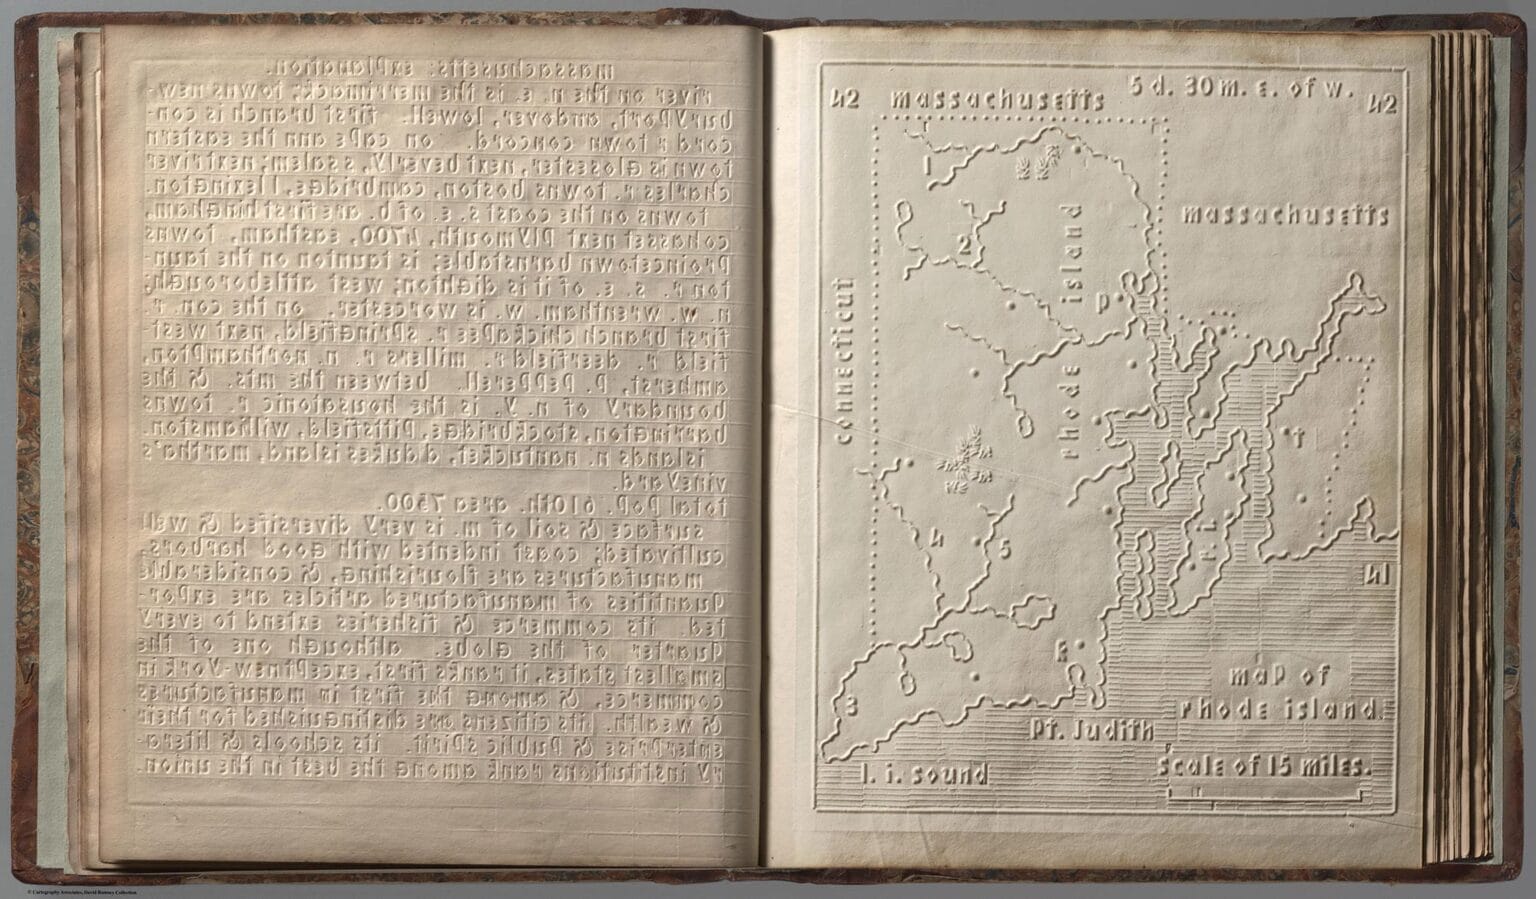 massachusetts: explanation.
river on the n. e. is the merrimack; towns new-
buryport, andover, lowell. first branch is con-
cord r town concord. on cape ann the eastern
town is glosester, next beverly, s salem; next river
charles r. towns boston, cambridge, l lexington.
towns on the coast s. e. of b. are first hingham,
cohasset next plymouth, 4700, eastham, towns
princetown barnstable; is taunton on the taun-
ton r. s. e. of it is dighton; west attleborough;
n. w. wrentham. w. is worcester. on the con. r.
first branch chickapee r. springfield, next west-
field r. deerfield r. millers r. n. northampton,
amherst, p. pepperell. between the mts. & the
boundary of n. y. is the housatonic r. towns
barrington, stockbridge, pittsfield, williamston.
islands n. nantucket, d dukes island, martha's
vineyard.
total pop. 610th. area 7500.
surface & soil of m. is very diversified & well
cultivated; coast indented with good harbors.
manufactures are flourishing, & considerable
quantities of manufactured articles are expor-
ted. its commerce & fisheries extend to every
quarter of the globe. although one of the
smallest states, it ranks first, except new-york in
commerce, & among the first in manufactures
& wealth. its citizens are distinguished for their
enterprise & public spirit. its schools & litera-
ry institutions rank among the best in the union.
42 massachusetts 5 d. 30 m. e. of w. 42
1
massachusetts
2
connecticut
rhode island
p
t
r. i.
4
5
41
k
3
map of
rhode island.
pt. judith
l. i. sound
scale of 15 miles.
© Cartography Associates, David Rumsey Collection